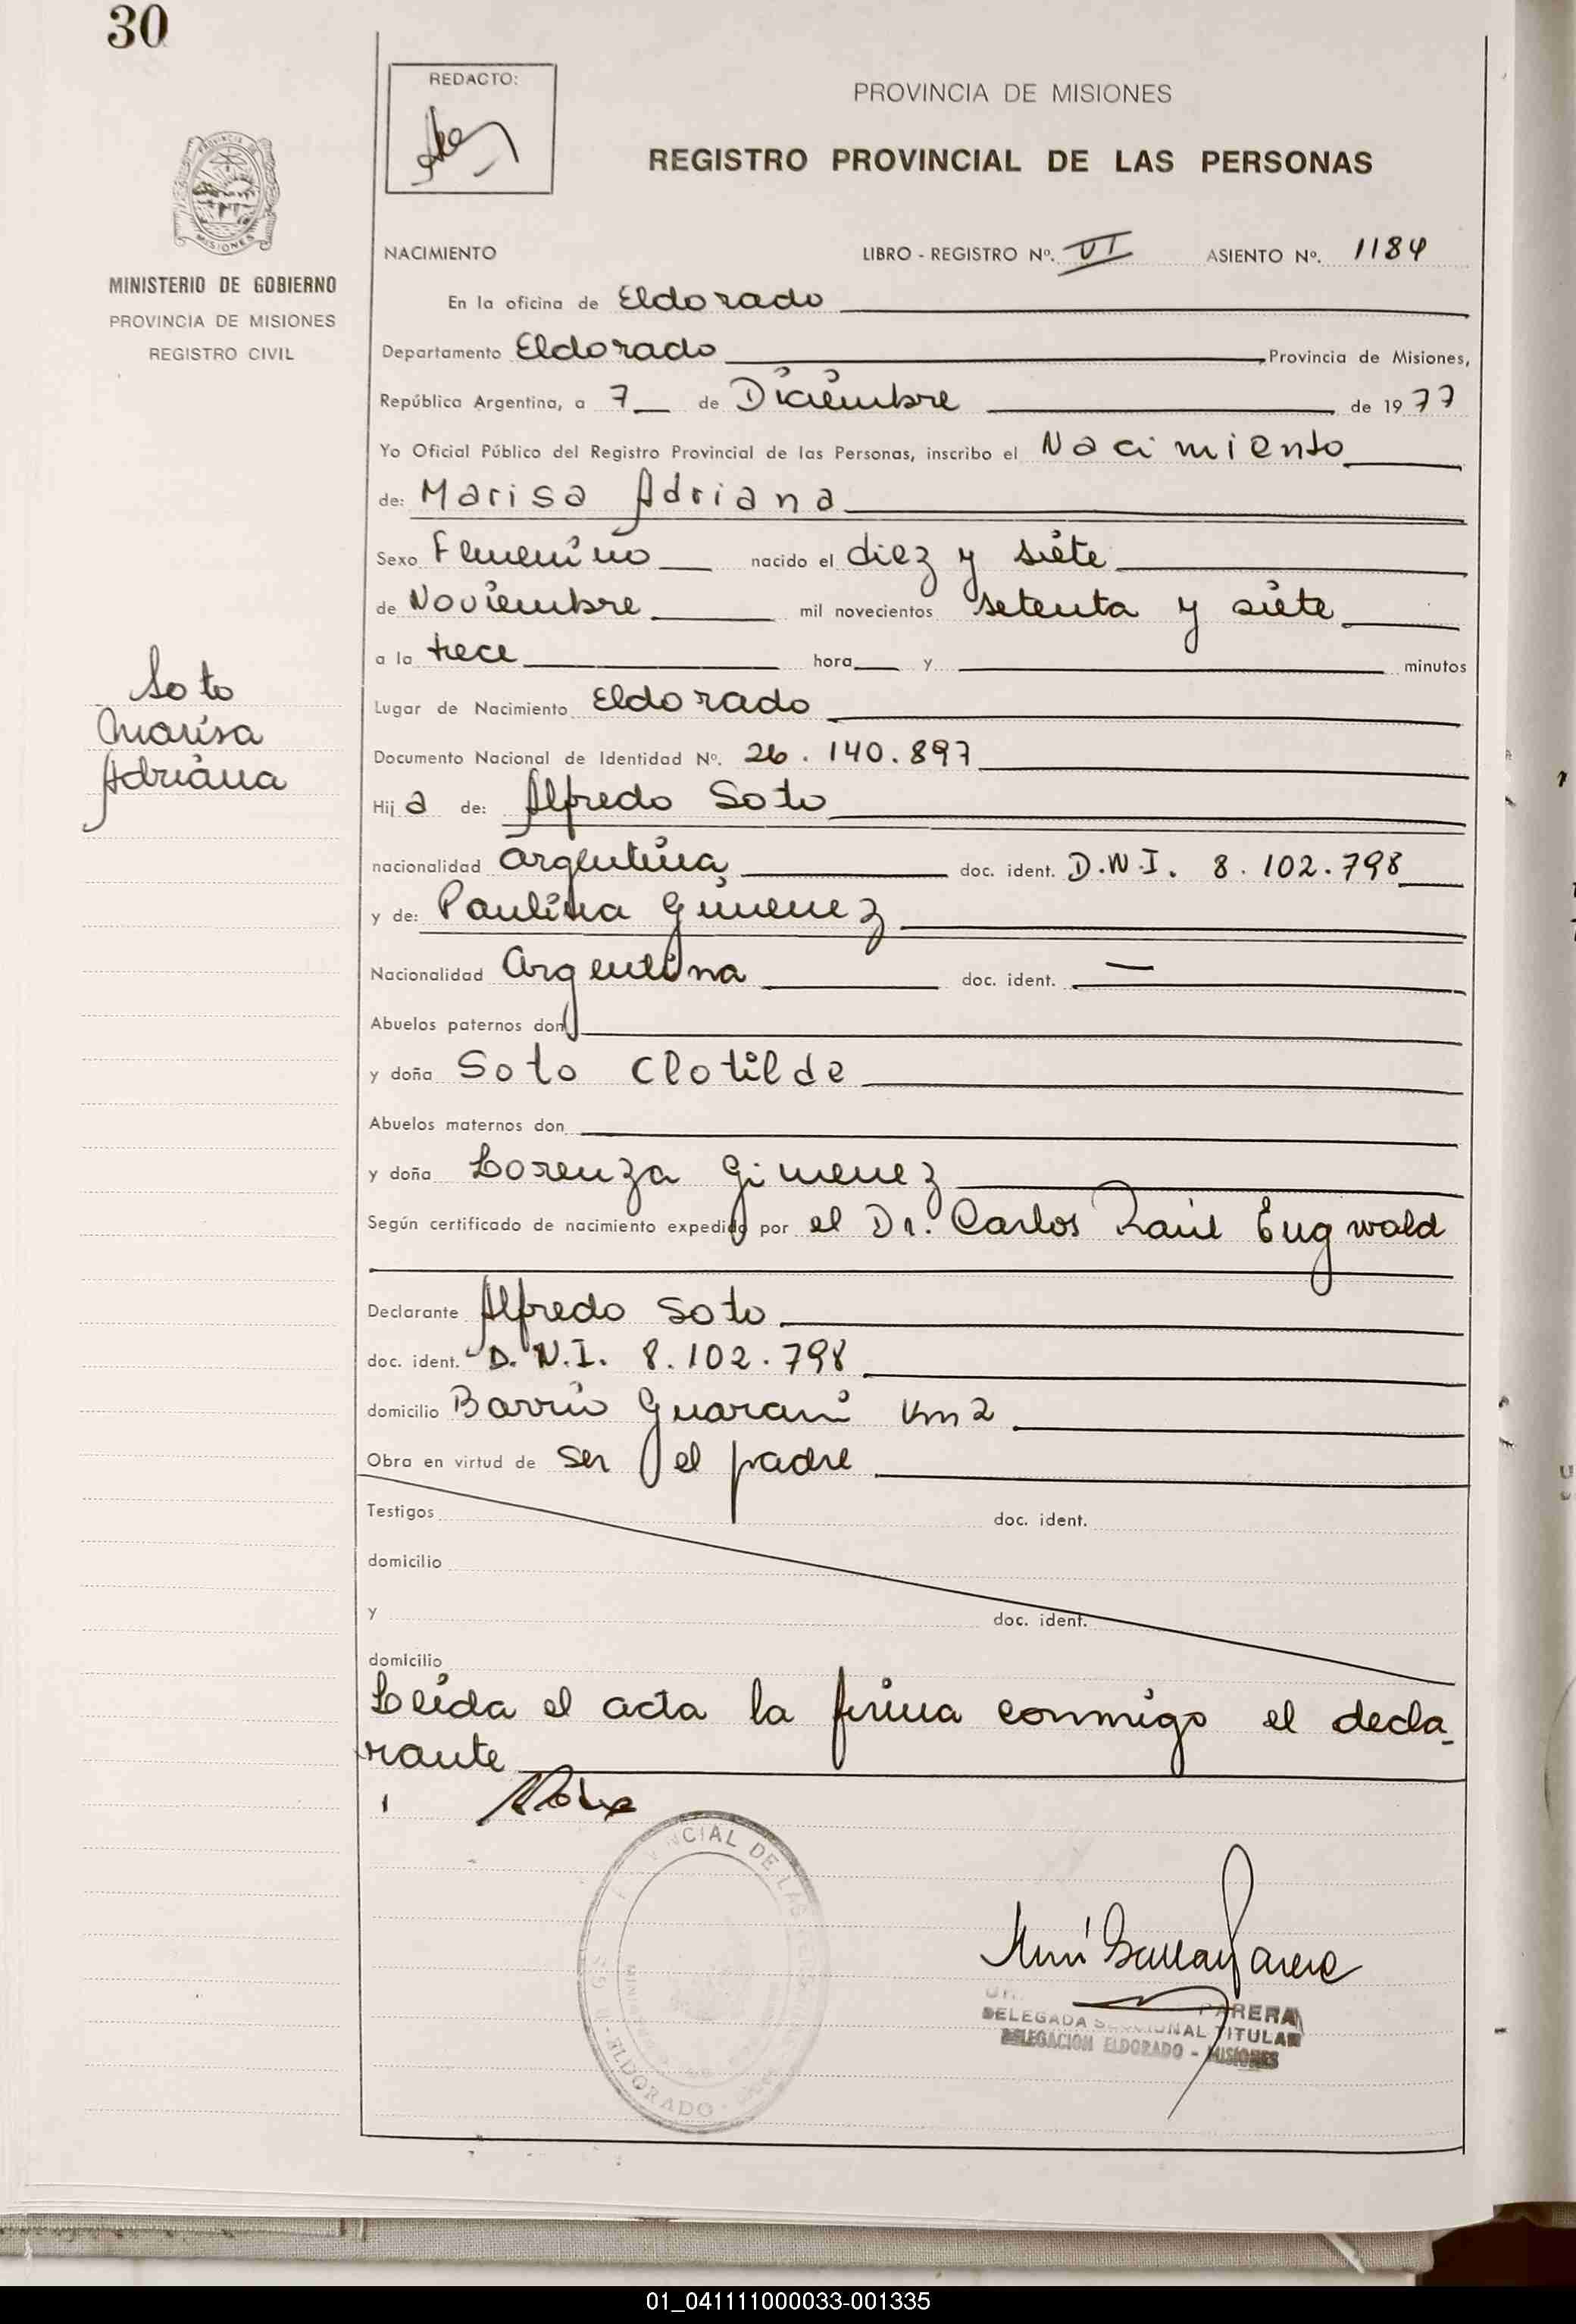 30
REDACTO:
PROVINCIA DE MISIONES
REGISTRO PROVINCIAL DE LAS PERSONAS
MISIONES
MINISTERIO DE GOBIERNO
PROVINCIA DE MISIONES
REGISTRO CIVIL
NACIMIENTO LIBRO - REGISTRO Nº. VI ASIENTO Nº. 1184
En la oficina de Eldorado
Departamento Eldorado Provincia de Misiones,
República Argentina, a 7 de Diciembre de 1977
Yo Oficial Público del Registro Provincial de las Personas, inscribo el Nacimiento
de: Marisa Adriana
Sexo Femenino nacido el diez y siete
de Noviembre mil novecientos setenta y siete
a la trece hora y minutos
Soto
Marisa
Adriana
Lugar de Nacimiento Eldorado
Documento Nacional de Identidad Nº. 26.140.897
Hija de: Alfredo Soto
nacionalidad argentina doc. ident. D.N.I. 8.102.798
y de: Paulina Gimenez
Nacionalidad Argentina doc. ident. —
Abuelos paternos don
y doña Soto Clotilde
Abuelos maternos don
y doña Lorenza Gimenez
Según certificado de nacimiento expedido por el Dr. Carlos Raúl Eugwald
Declarante Alfredo Soto
doc. ident. D.N.I. 8.102.798
domicilio Barrio Guarani Km 2
Obra en virtud de ser el padre
Testigos doc. ident.
domicilio
y doc. ident.
domicilio
Leida el acta la firma conmigo el decla-
rante
CIAL DE LAS
ELDORADO
PARERA
DELEGADA SECCIONAL TITULAR
DELEGACION ELDORADO - MISIONES
01_041111000033-001335